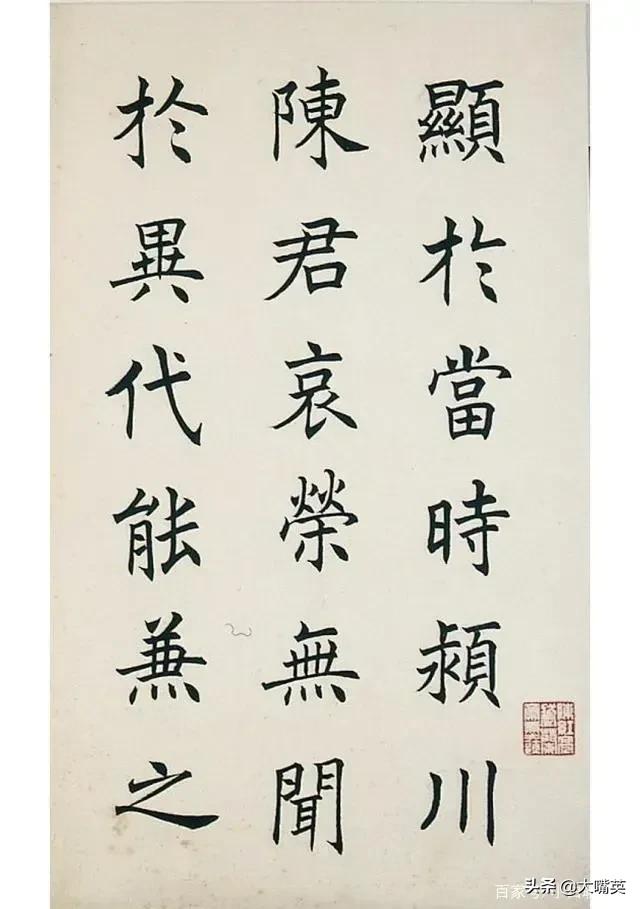 顯於當時潁川
陳君哀榮無聞
於異代能兼之
头条 @大嘴英